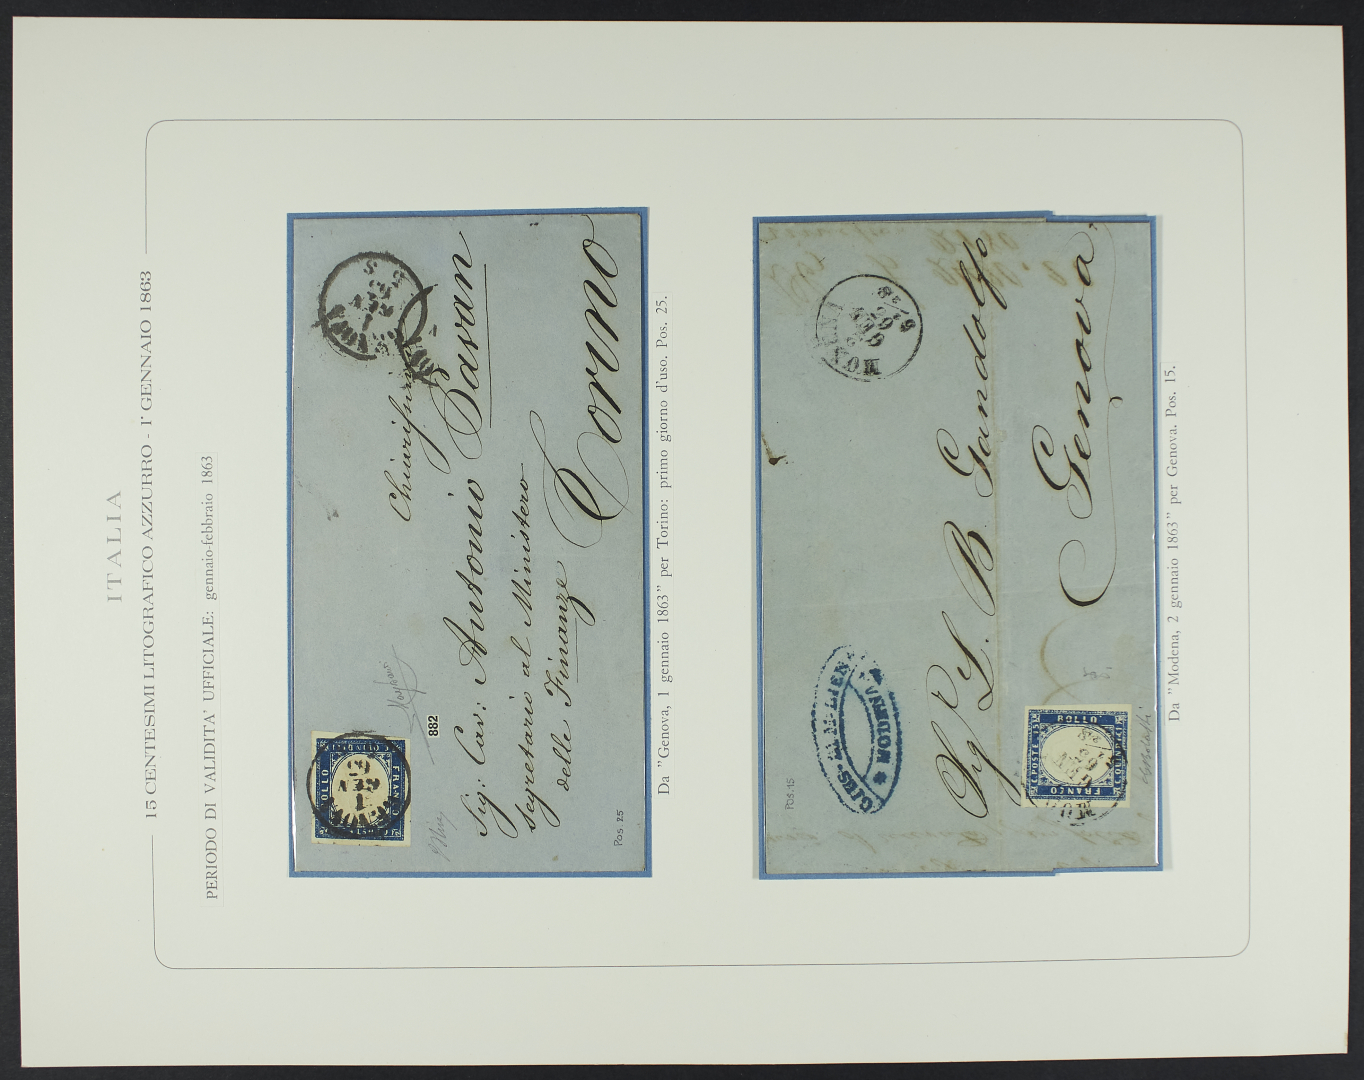 ITALIA
15 CENTESIMI LITOGRAFICO AZZURRO - 1° GENNAIO 1863
PERIODO DI VALIDITA' UFFICIALE: gennaio-febbraio 1863
GENOVA
1
GEN
63
882
Sig: Cav: Antonio Pavan
segretario al Ministero
delle Finanze
Torino
Pos 25
Da "Genova, 1 gennaio 1863" per Torino: primo giorno d'uso. Pos. 25.
MODENA
MODENA
Pos. 15
Sig G. B. Gandolfo
Genova
FRANCO
BOLLO
C. POSTE 15
C. QUINDICI
Da "Modena, 2 gennaio 1863" per Genova. Pos. 15.